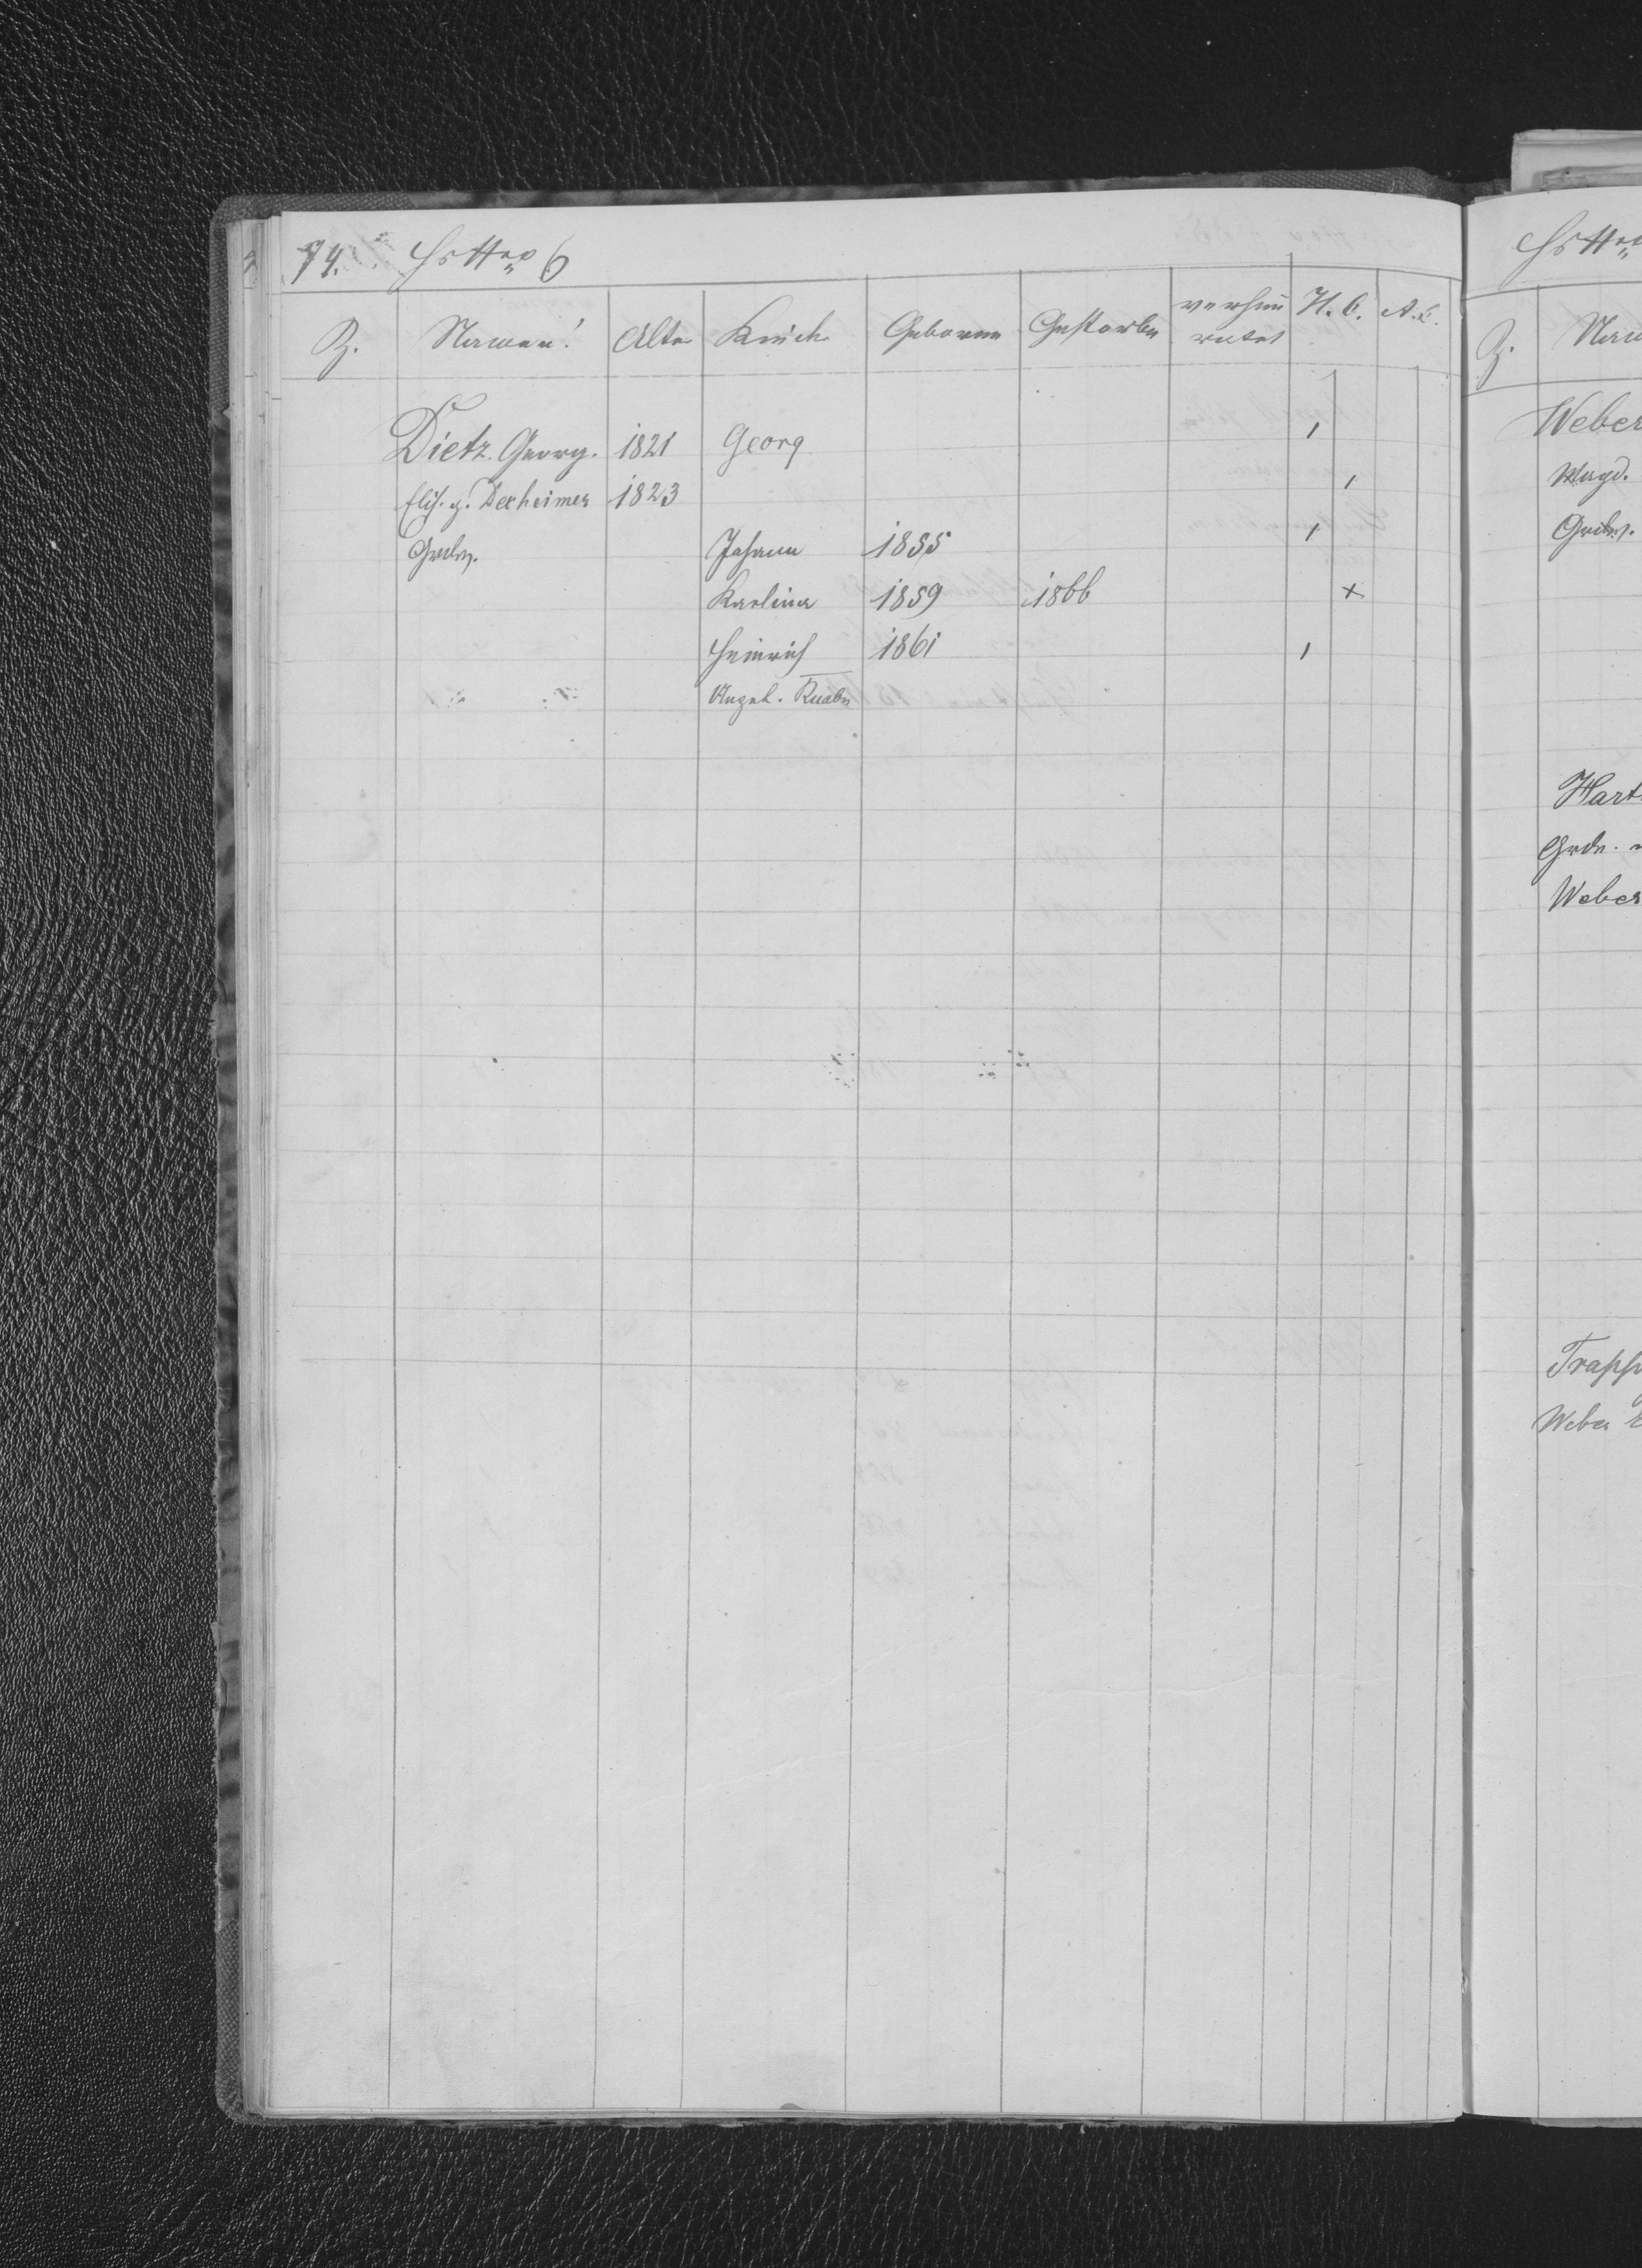 74. Hs Nro 6
Z. Namen! Alter Kinder Geboren Gestorben verhei ratet H. C. A. C.
Dietz Georg. 1821 Georg
Elis. g. Dexheimer 1823
Johann 1855
Karolina 1859 1866 x
Heinrich 1861
Ungeh. Knabe
Hs Nro
Z. Nam
Weber
Magd.
Hart
Weber
Weber